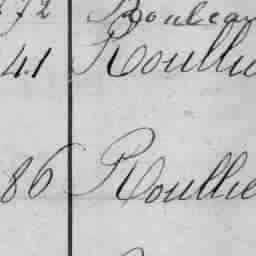 72 Rouleau
41 Roullie
86 Roullie